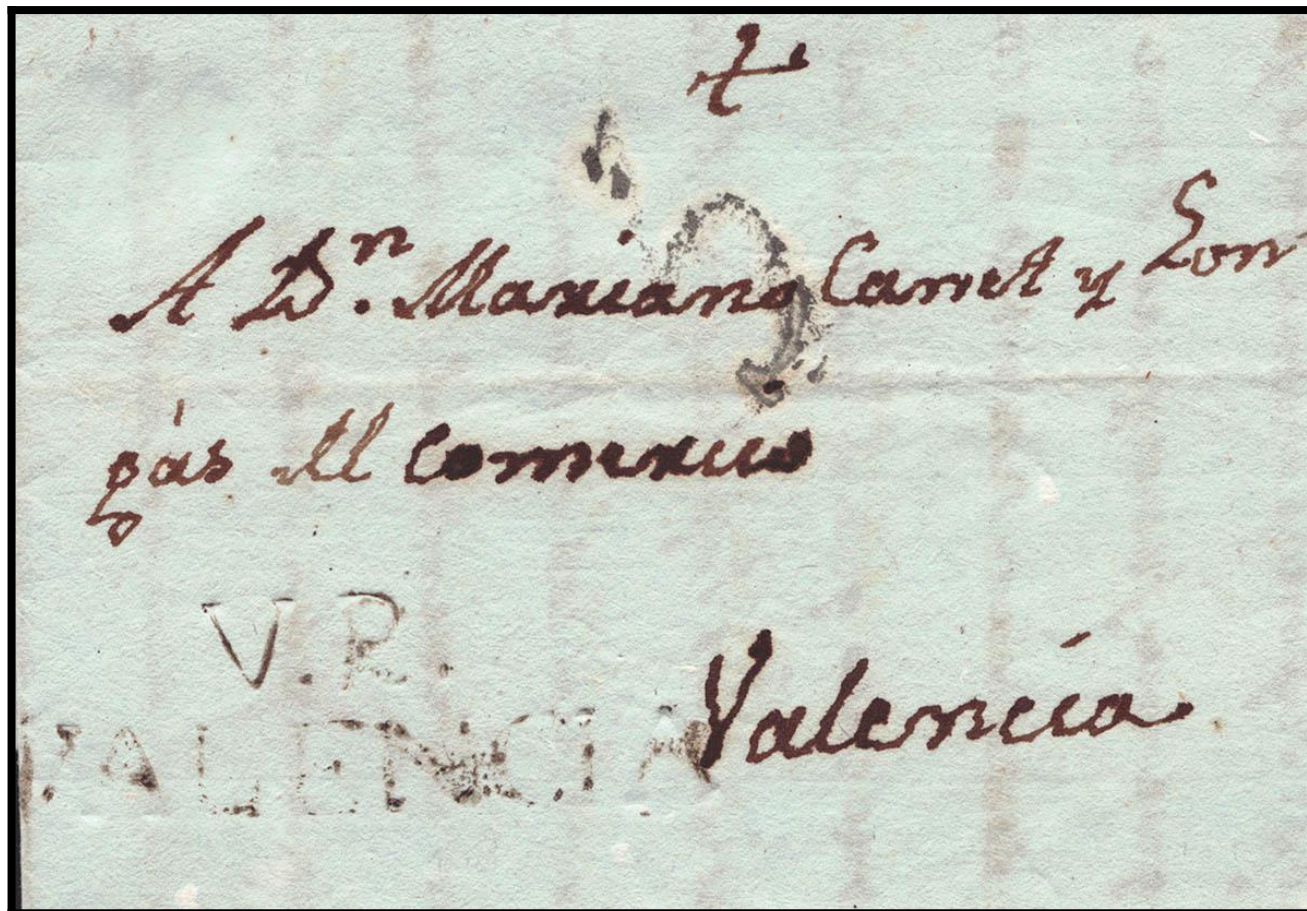 A Dn. Mariano Carret y Com
pás del Comercio
V.R.
VALENCIA
Valencia